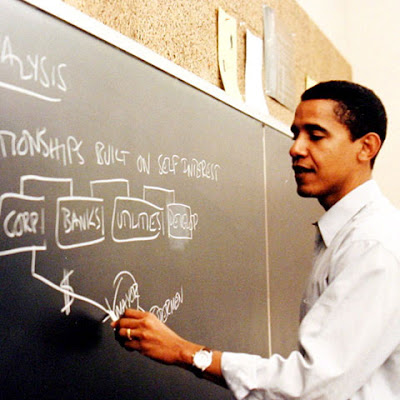 ALYSIS
TIONSHIPS BUILT ON SELF INTEREST
CORP BANKS UTILITIES
$ MAYOR